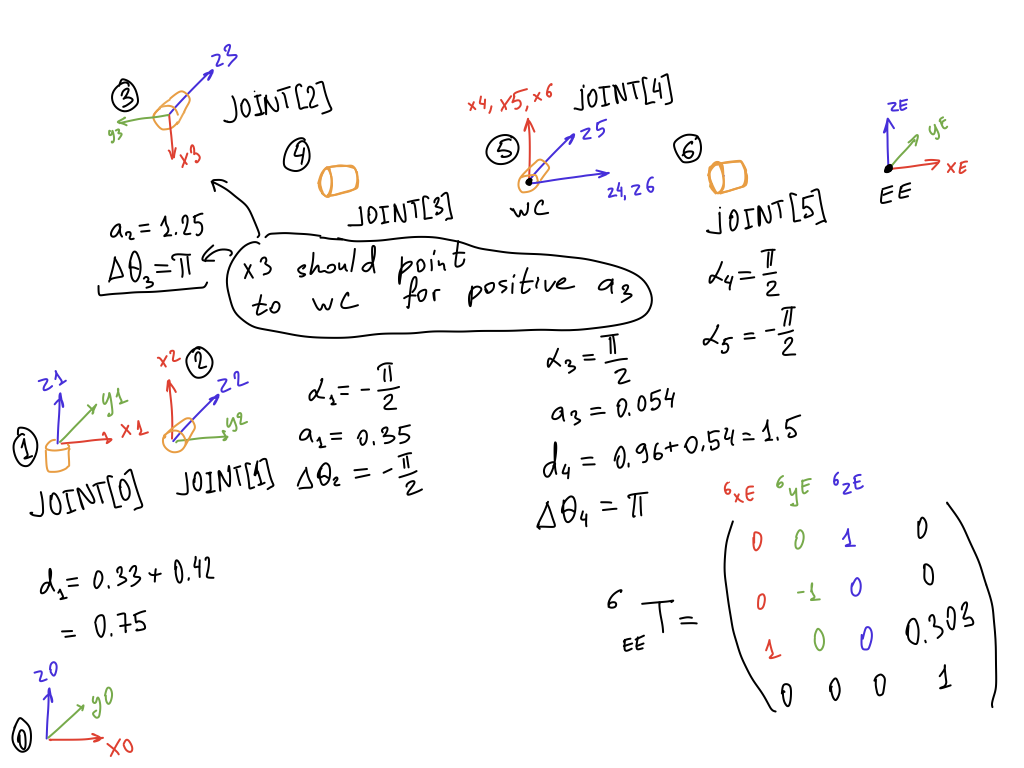 3
z3
y3
x3
JOINT[2]
4
JOINT[3]
x4, x5, x6
JOINT[4]
5
z5
z4, z6
WC
6
JOINT[5]
zE
yE
xE
EE
a₂ = 1.25
Δθ₃ = π
x3 should point
to WC for positive a₃
α₄ = π/2
α₅ = -π/2
1
z1
y1
x1
JOINT[0]
x2
2
z2
y2
JOINT[1]
α₁ = -π/2
a₁ = 0.35
Δθ₂ = -π/2
α₃ = π/2
a₃ = 0.054
d₄ = 0.96 + 0.54 = 1.5
Δθ₄ = π
d₁ = 0.33 + 0.42
= 0.75
0
z0
y0
x0
⁶xE ⁶yE ⁶zE
⁶EE T =
0 0 1 0
0 -1 0 0
1 0 0 0.303
0 0 0 1